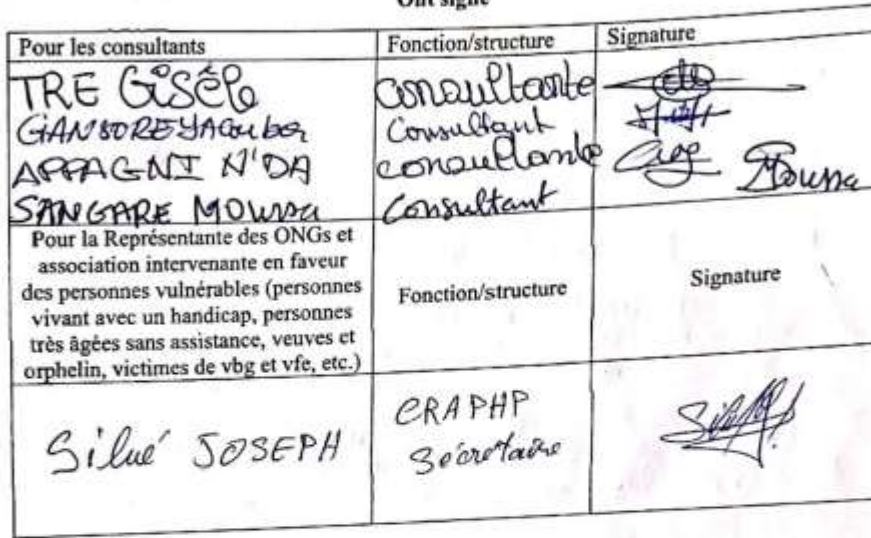 Ont signé
Pour les consultants Fonction/structure Signature
TRE Gisèle consultante
GANSORE Yacouba Consultant
APPAGNI N'DA consultante
SANGARE Moussa Consultant Moussa
Pour la Représentante des ONGs et
association intervenante en faveur
des personnes vulnérables (personnes
vivant avec un handicap, personnes
très âgées sans assistance, veuves et
orphelin, victimes de vbg et vfe, etc.)
Fonction/structure
Signature
Silué JOSEPH
CRAPHP
Sécrétaire